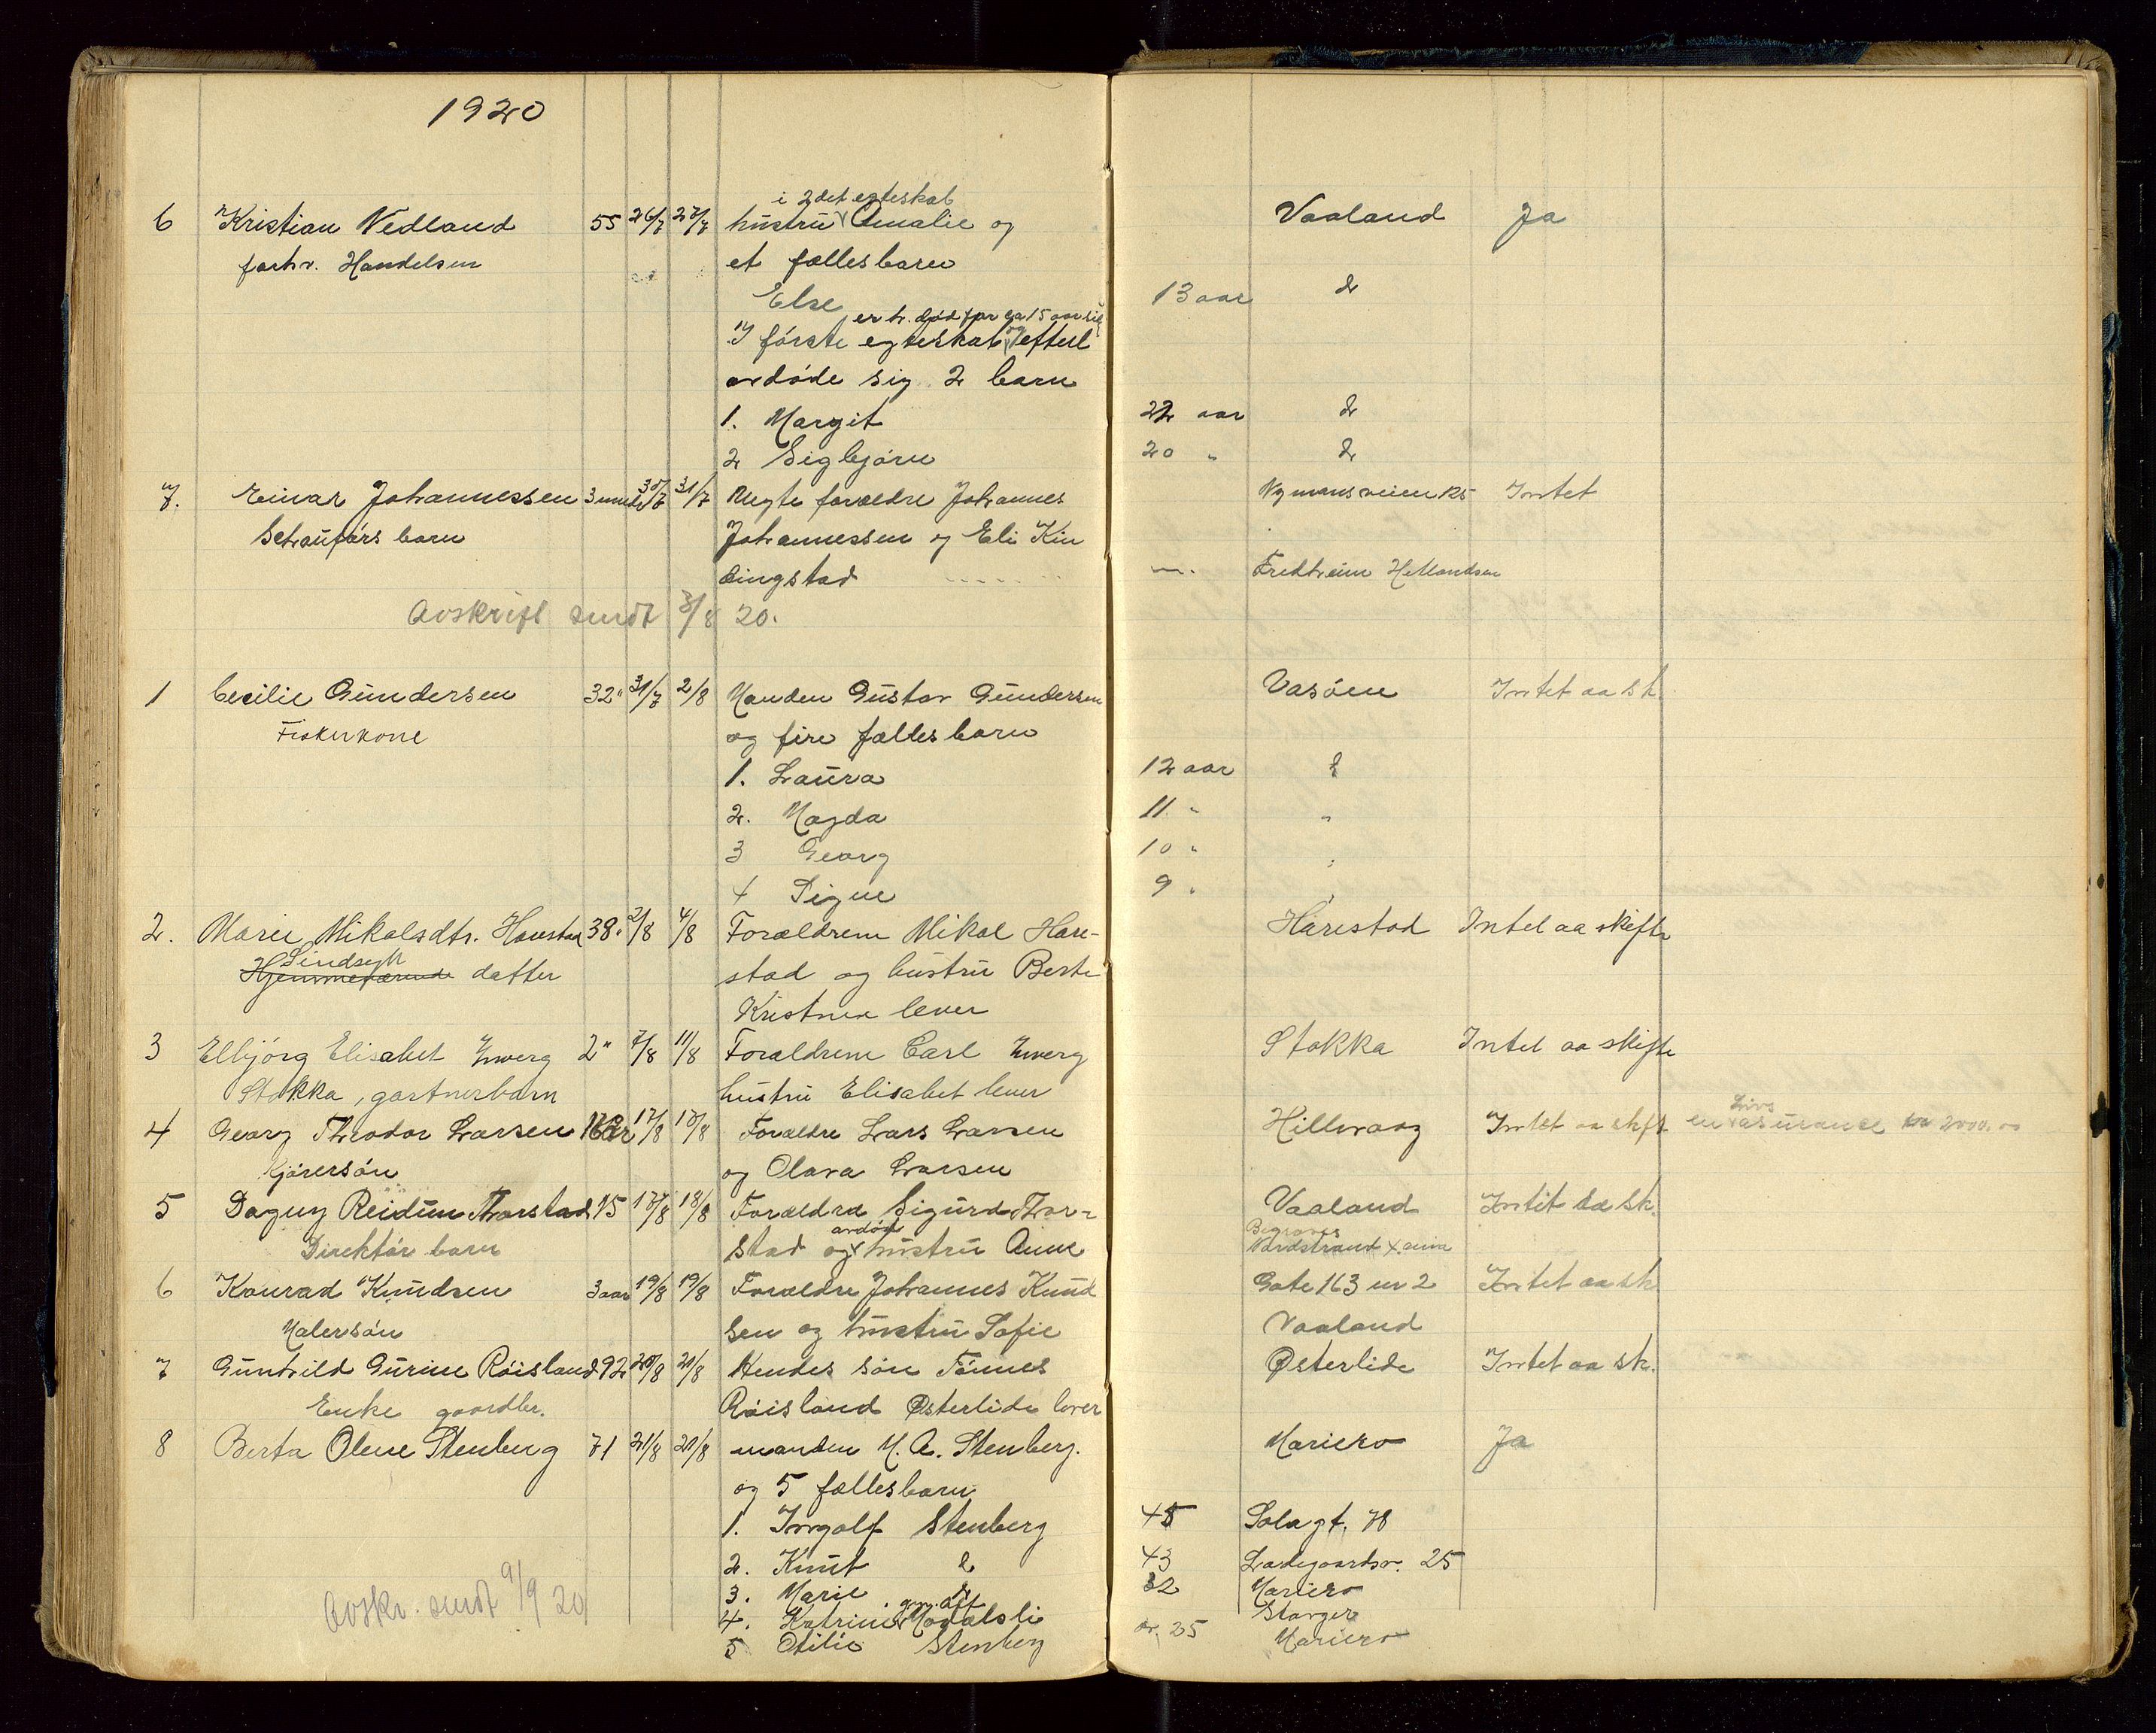 1920
i 2det egteskab
6 Kristian Vedland 55 26/7 27/7 hustru Amalie og Vaaland Ja
forhv. Handelsm et fællesbarn
Else 13 aar do
er h. død for ca 15 aar sid
I første egteskab og efterl
avdøde sig 2 barn
1. Margit 22 aar do
2 Sigbjørn 20 " do
7. Einar Johannessen 3 mndr 30/7 31/7 Uegte forældre Johannes Nymansveien 125 Intet
Schauførs barn Johannessen og Eli Kin
dingstad Fredheim Hetlandsm
Avskrift sendt 3/8 20.
1 Cecilie Gundersen 32 " 31/7 2/8 Manden Gustav Gundersen Vasøen Intet aa sk.
Fiskerkone og fire fællesbarn
1. Laura 12 aar do
2. Magda 11 " "
3 Georg 10 " "
4 Signe 9 " "
2. Marie Mikalsdtr. Harestad 38 " 2/8 4/8 Forældrene Mikal Hare- Harestad Intet aa skifte
Sindsyk
Hjemmeværende datter stad og hustru Berte
Kristine lever
3 Elbjørg Elisabet Zwerg 2 " 7/8 11/8 Forældrene Carl Zwerg Stokka Intet aa skifte
Stokka, gartnerbarn hustru Elisabet lever
4 Georg Theodor Larsen 16 aar 17/8 18/8 Forældre Lars Larsen Hillevaag Intet aa skift en Livs asurance kr 2000.00
Kjørersøn og Olava Larsen
5 Dagny Reidun Thorstad 15 17/8 18/8 Forældre Sigurd Thor- Vaaland Intet aa sk.
avdød
Direktør barn stad og hustru Anne Begraves Nordstrand
6 Konrad Knudsen 3 aar 19/8 19/8 Forældre Johannes Knud Gate 163 nr 2 Intet aa sk
Malersøn sen og hustru Sofie Vaaland
7 Gunhild Gurine Røisland 92 20/8 21/8 Hendes søn Tønnes Østerlide Intet aa sk.
Enke gaardbr. Røisland Østerlide lever
8 Berta Olene Stenberg 71 21/8 21/8 manden M. A. Stenberg. Mariero Ja
og 5 fællesbarn
1. Ingolf Stenberg 45 Solagt. 78
2. Knut do 43 Ladegaardsv. 25
3. Marie do 32 Mariero
gm. att
4. Katrine Stavger
5 Otilie Stenberg 25 Mariero
Avskr. sendt 9/9 20